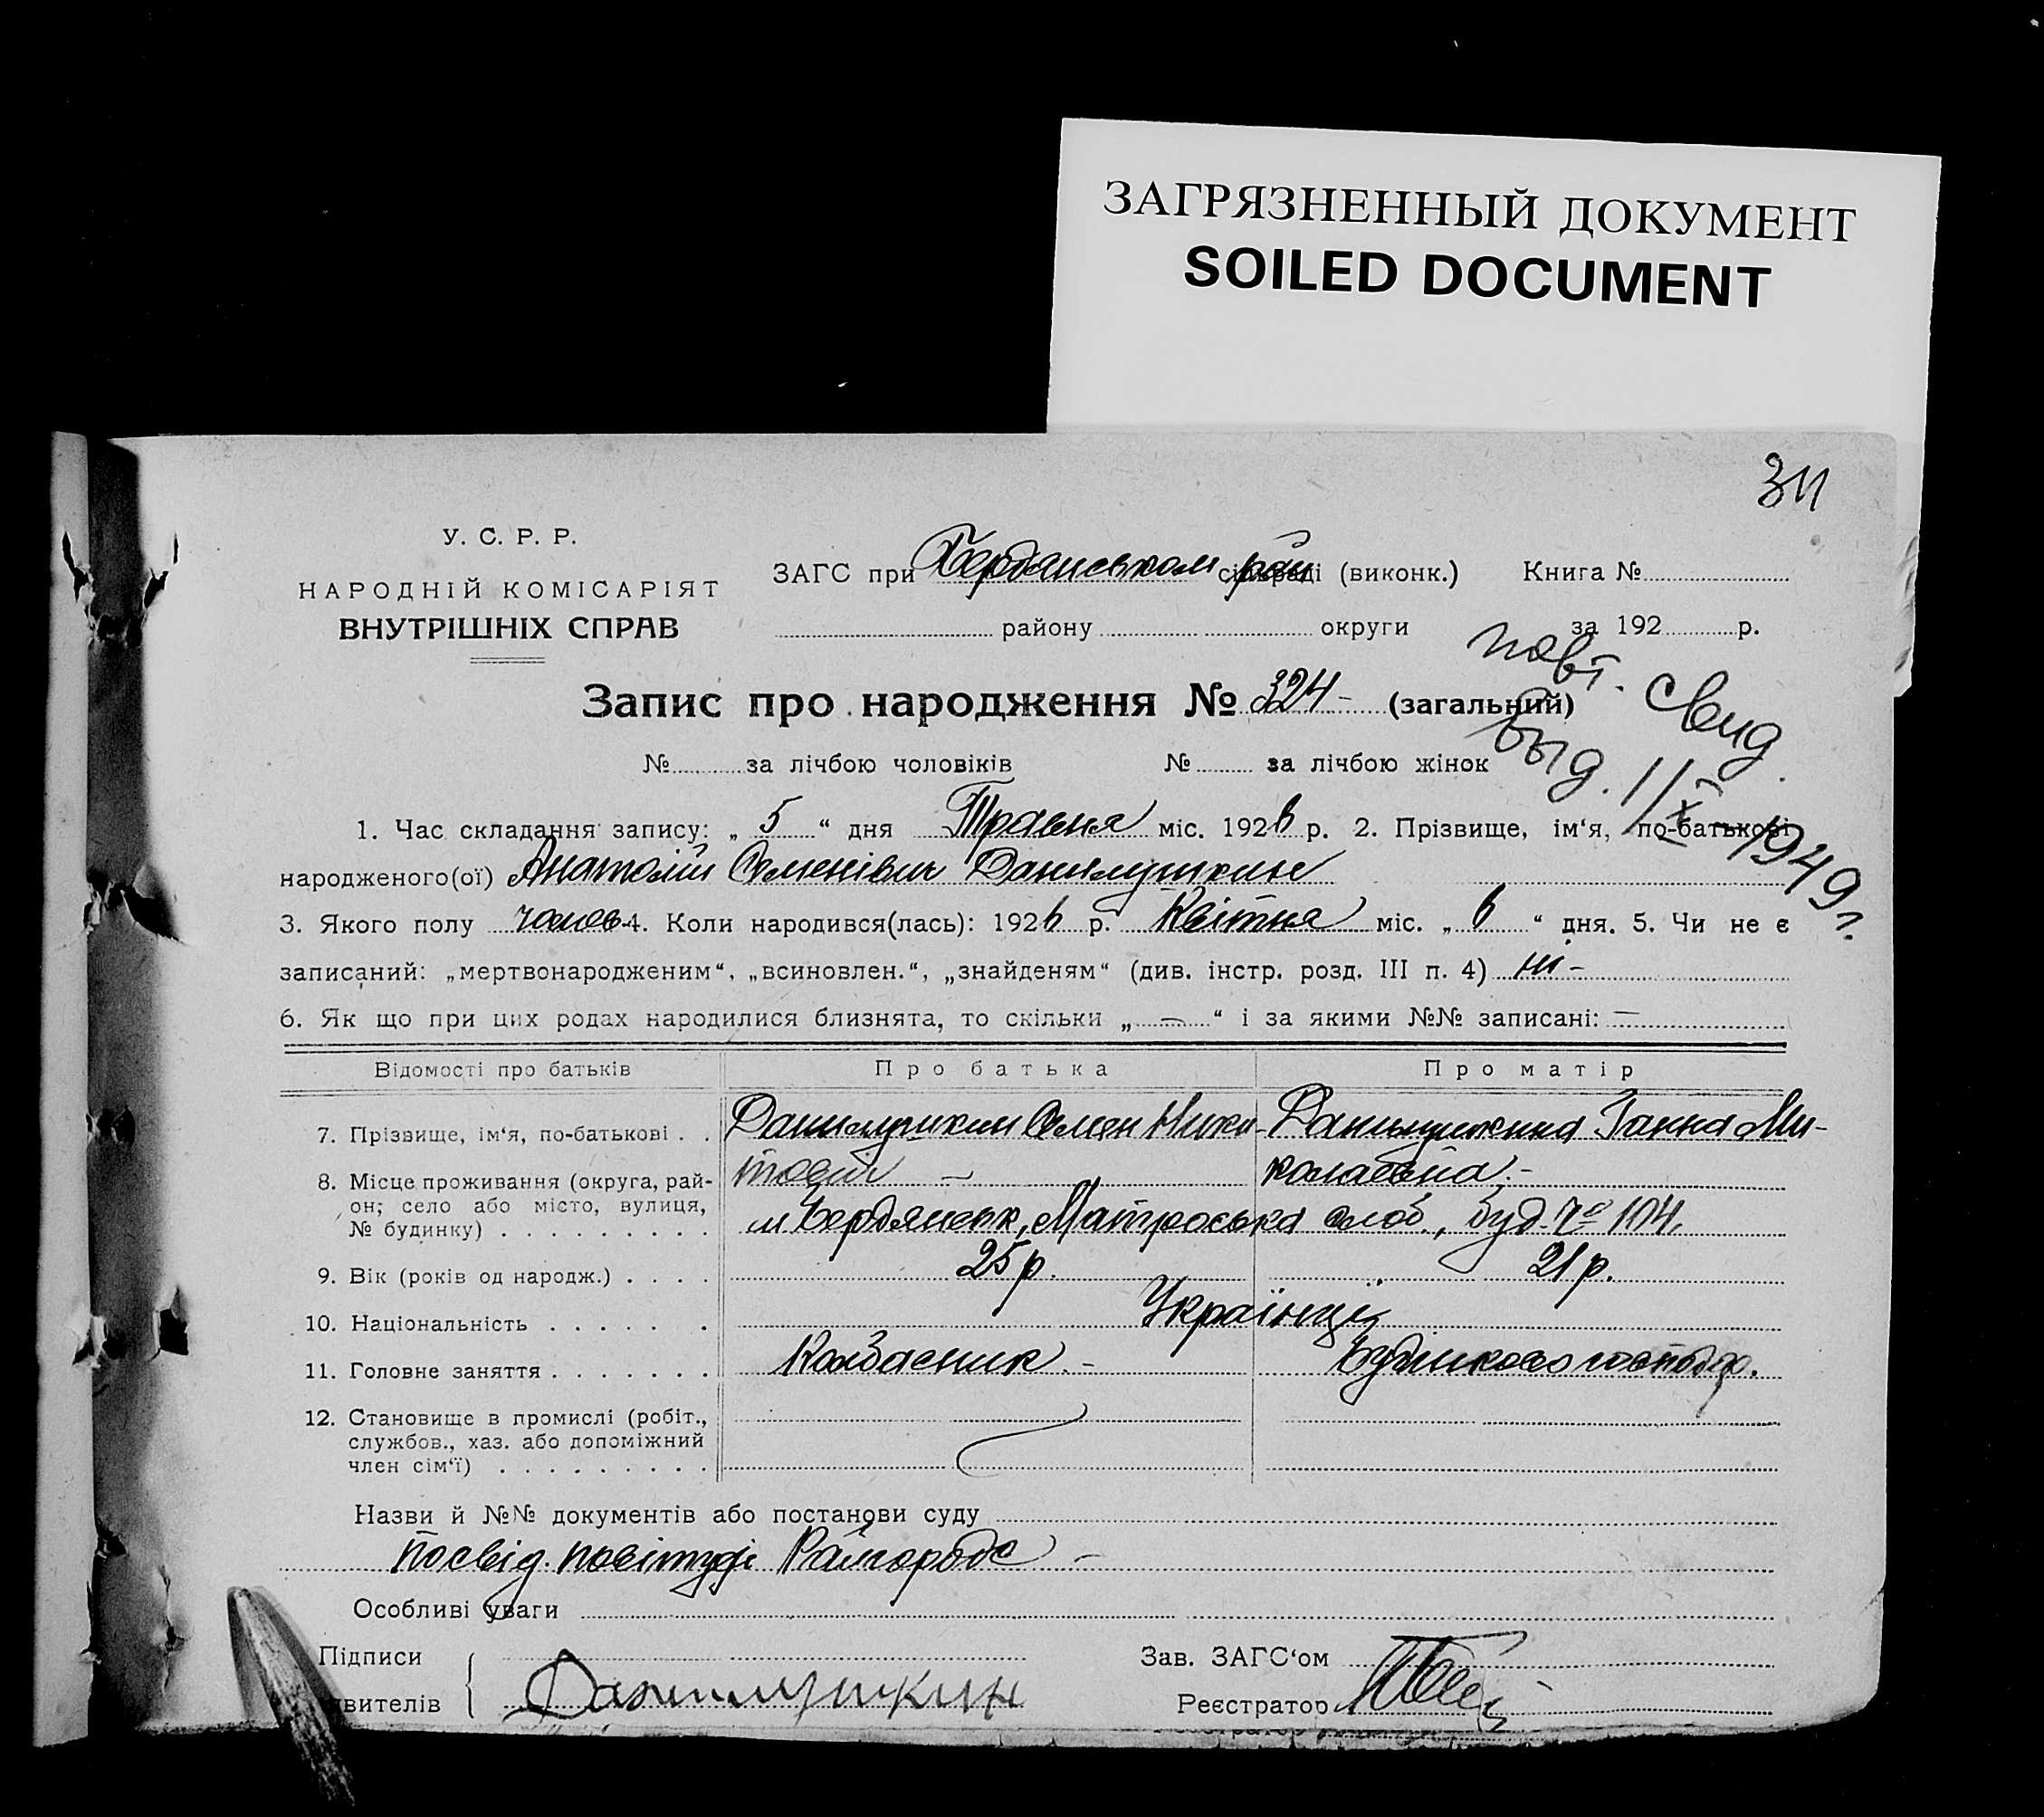 ЗАГРЯЗНЕННЫЙ ДОКУМЕНТ
SOILED DOCUMENT
311
У. С. Р. Р.
НАРОДНІЙ КОМІСАРІЯТ
ВНУТРІШНІХ СПРАВ
ЗАГС при Бердянськом рай сільраді (виконк.) Книга №
району округи за 192 р.
повт. свид.
выд. 11/X-1949 г.
Запис про народження № 324 - (загальний)
№ за лічбою чоловіків № за лічбою жінок
1. Час складання запису: „ 5 “ дня Травня міс. 1926 р. 2. Прізвище, ім‘я, по-батькові
народженого(ої) Анатолій Семенівич Данилушкин
3. Якого полу чолов 4. Коли народився(лась): 1926 р. Квітня міс. „ 6 “ дня. 5. Чи не є
записаний: „мертвонародженим“, „всиновлен.“, „знайденям“ (див. інстр. розд. III п. 4) ні -
6. Як що при цих родах народилися близнята, то скільки „ — “ і за якими №№ записані: —
Відомості про батьків Про батька Про матір
7. Прізвище, ім‘я, по-батькові . . Данилушкин Семен Ники- Данилушкина Ганна Ми-
товіч — колаєвна. -
8. Місце проживання (округа, рай-
он; село або місто, вулиця,
№ будинку) . . . . . . . . . м Бердянськ, Матроська слоб., буд. № 104.
9. Вік (років од народж.) . . . . 25 р. 21 р.
10. Національність . . . . . . Українці
11. Головне заняття . . . . . . . Колбасник. - Будинкове господар.
12. Становище в промислі (робіт.,
службов., хаз. або допоміжний
член сім‘ї) . . . . . . . . .
Назви й №№ документів або постанови суду
Посвід. повітухі —
Особливі уваги
Підписи Зав. ЗАГС‘ом
явителів Данилушкин Реєстратор